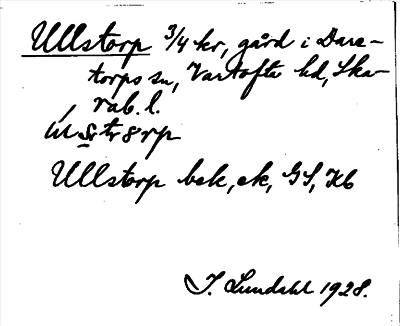 Ullstorp 3/4 kr, gård i Dare-
torps sn, Vartofta hd, Ska-
rab. l.
Ullstorp bek, ek, GS, Kb
I. Lundahl 1928.